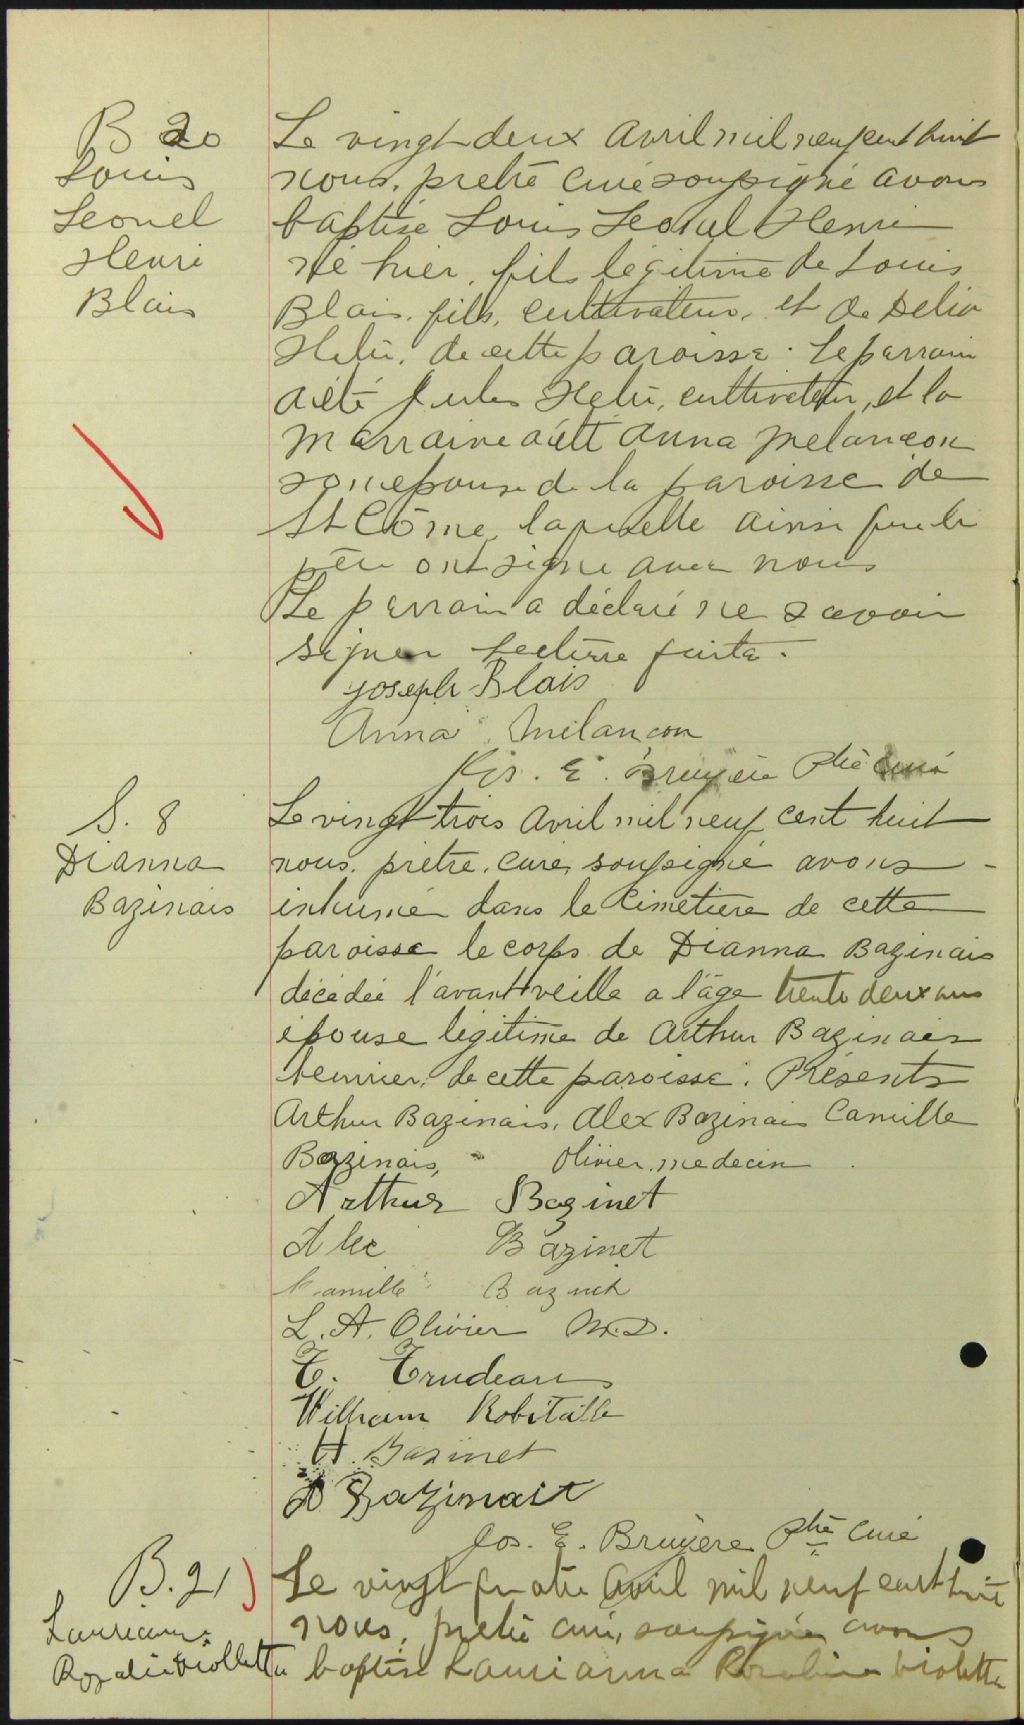 B 20
Louis
Leonel
Henri
Blais
Le vingt-deux avril mil neuf cent huit
nous, pretre curé soussigné avons
baptisé Louis Leonel Henri
né hier, fils légitime de Louis
Blais, fils, cultivateur, et de Delia
Hétu, de cette paroisse. Le parrain
a été Jules Hétu, cultivateur, et la
marraine a été Anna Melançon
son epouse de la paroisse de
St Côme, laquelle ainsi que le
père ont signé avec nous
Le parrain a déclaré ne savoir
signer lecture faite.
Joseph Blais
Anna Melançon
Jos. E. Bruyère Ptre curé
S. 8
Dianna
Bazinais
Le vingt-trois avril mil neuf cent huit
nous, prêtre, curé, soussigné avons
inhumé dans le cimetiere de cette
paroisse le corps de Dianna Bazinais
décédée l'avant veille a l'âge trente deux ans
épouse légitime de Arthur Bazinais
de cette paroisse. Présents
Arthur Bazinais, Alex Bazinais Camille
Bazinais, Olivier, medecin
Arthur Bazinet
Alec Bazinet
Camille Bazinet
L. A. Olivier M.D.
T. Trudeau
William Robitaille
H. Bazinet
A Bazinait
Jos. E. Bruyère Ptre curé
B. 21
Laurianna
Rozalia Violletta
Le vingt quatre avril mil neuf cent huit
nous, pretre curé, soussigné avons
baptisé Laurianna violetta